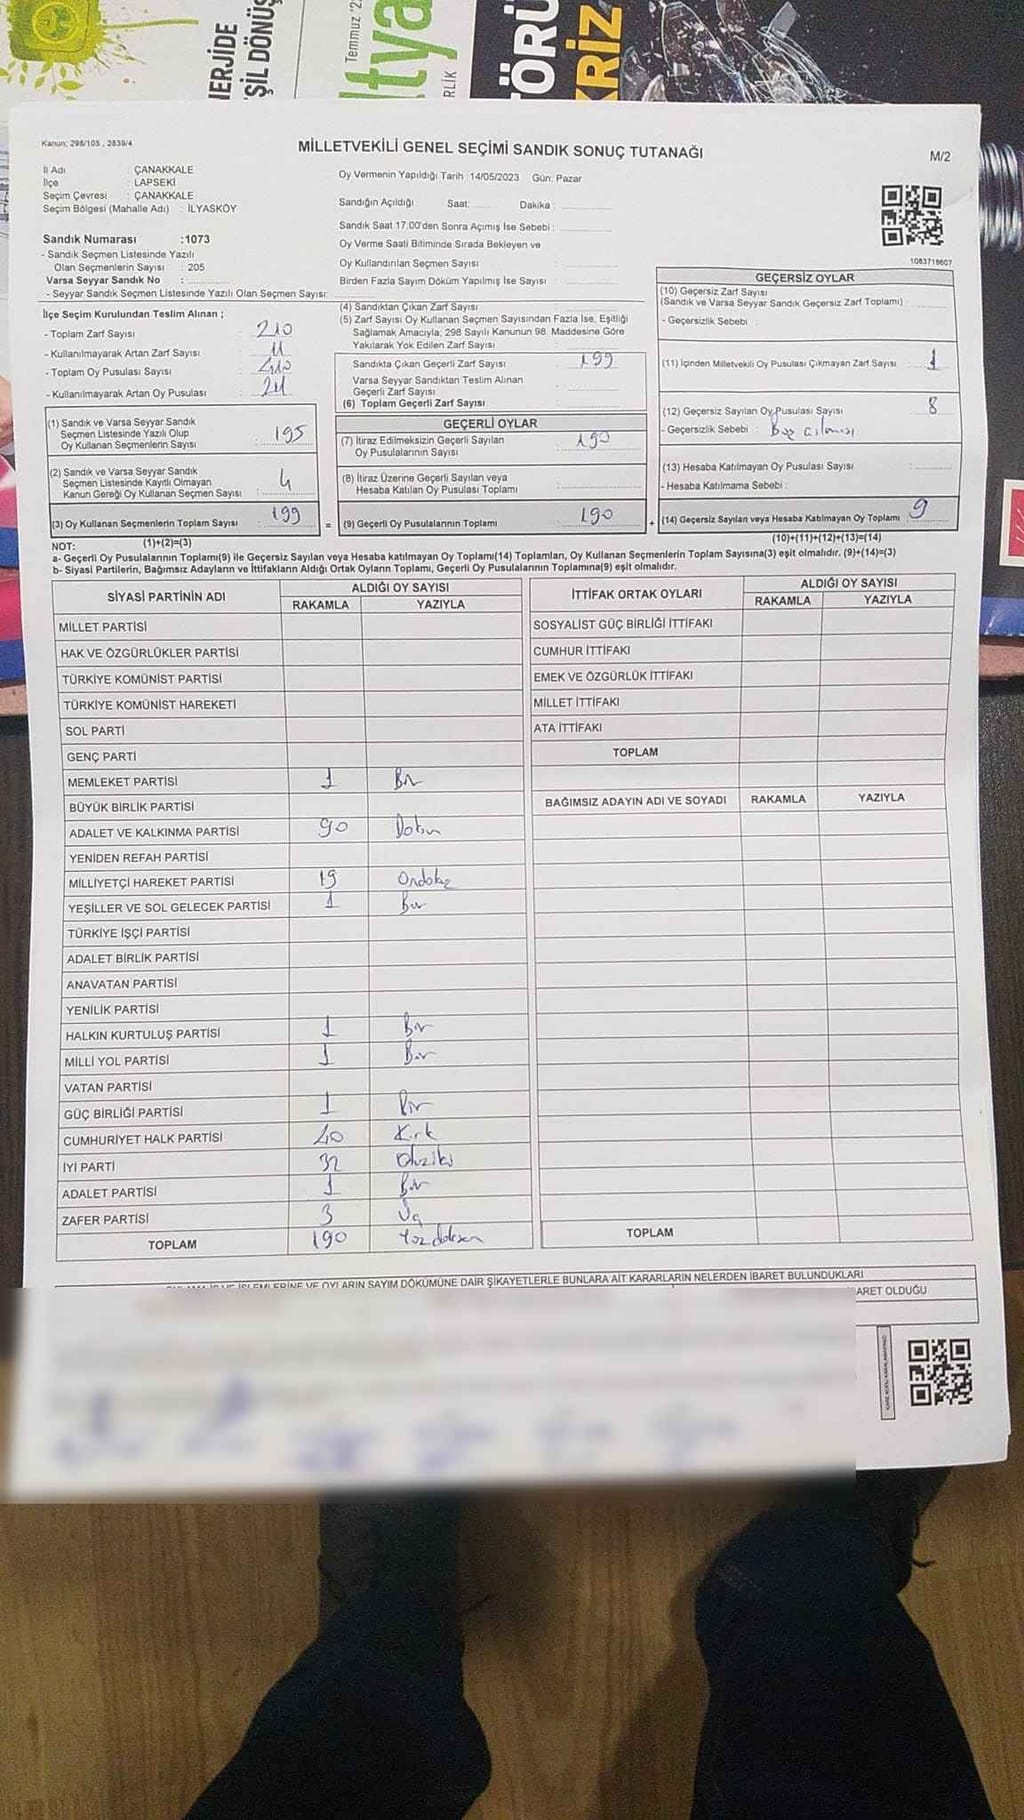 ERJİDE
ŞİL DÖNÜŞ
Temmuz '2
ltya
RLİK
TÖRÜ
KRİZ
Kanun; 298/105 , 2839/4
MİLLETVEKİLİ GENEL SEÇİMİ SANDIK SONUÇ TUTANAĞI
M/2
İl Adı : ÇANAKKALE
İlçe : LAPSEKİ
Seçim Çevresi : ÇANAKKALE
Seçim Bölgesi (Mahalle Adı) : İLYASKÖY
Oy Vermenin Yapıldığı Tarih :14/05/2023 Gün: Pazar
Sandığın Açıldığı Saat: Dakika :
Sandık Saat 17.00'den Sonra Açımış İse Sebebi :
Oy Verme Saati Bitiminde Sırada Bekleyen ve
Oy Kullandırılan Seçmen Sayısı :
Birden Fazla Sayım Döküm Yapılmış İse Sayısı :
1083718607
Sandık Numarası :1073
- Sandık Seçmen Listesinde Yazılı
Olan Seçmenlerin Sayısı : 205
Varsa Seyyar Sandık No :
- Seyyar Sandık Seçmen Listesinde Yazılı Olan Seçmen Sayısı:
İlçe Seçim Kurulundan Teslim Alınan ;
- Toplam Zarf Sayısı : 210
- Kullanılmayarak Artan Zarf Sayısı : 11
- Toplam Oy Pusulası Sayısı : 410
- Kullanılmayarak Artan Oy Pusulası : 211
(1) Sandık ve Varsa Seyyar Sandık
Seçmen Listesinde Yazılı Olup
Oy Kullanan Seçmenlerin Sayısı : 195
(2) Sandık ve Varsa Seyyar Sandık
Seçmen Listesinde Kayıtlı Olmayan
Kanun Gereği Oy Kullanan Seçmen Sayısı : 4
(3) Oy Kullanan Seçmenlerin Toplam Sayısı : 199
(4) Sandıktan Çıkan Zarf Sayısı :
(5) Zarf Sayısı Oy Kullanan Seçmen Sayısından Fazla İse, Eşitliği
Sağlamak Amacıyla; 298 Sayılı Kanunun 98. Maddesine Göre
Yakılarak Yok Edilen Zarf Sayısı :
Sandıkta Çıkan Geçerli Zarf Sayısı : 199
Varsa Seyyar Sandıktan Teslim Alınan
Geçerli Zarf Sayısı :
(6) Toplam Geçerli Zarf Sayısı :
GEÇERLİ OYLAR
(7) İtiraz Edilmeksizin Geçerli Sayılan
Oy Pusulalarının Sayısı : 190
(8) İtiraz Üzerine Geçerli Sayılan veya
Hesaba Katılan Oy Pusulası Toplamı :
= (9) Geçerli Oy Pusulalarının Toplamı : 190
GEÇERSİZ OYLAR
(10) Geçersiz Zarf Sayısı
(Sandık ve Varsa Seyyar Sandık Geçersiz Zarf Toplamı) :
- Geçersizlik Sebebi :
(11) İçinden Milletvekili Oy Pusulası Çıkmayan Zarf Sayısı : 1
(12) Geçersiz Sayılan Oy Pusulası Sayısı : 8
- Geçersizlik Sebebi : Boş
(13) Hesaba Katılmayan Oy Pusulası Sayısı :
- Hesaba Katılmama Sebebi :
+ (14) Geçersiz Sayılan veya Hesaba Katılmayan Oy Toplamı : 9
NOT: (1)+(2)=(3)
(10)+(11)+(12)+(13)=(14)
a- Geçerli Oy Pusulalarının Toplamı(9) ile Geçersiz Sayılan veya Hesaba katılmayan Oy Toplamı(14) Toplamları, Oy Kullanan Seçmenlerin Toplam Sayısına(3) eşit olmalıdır. (9)+(14)=(3)
b- Siyasi Partilerin, Bağımsız Adayların ve İttifakların Aldığı Ortak Oyların Toplamı, Geçerli Oy Pusulalarının Toplamına(9) eşit olmalıdır.
SİYASİ PARTİNİN ADI
ALDIĞI OY SAYISI
RAKAMLA YAZIYLA
MİLLET PARTİSİ
HAK VE ÖZGÜRLÜKLER PARTİSİ
TÜRKİYE KOMÜNİST PARTİSİ
TÜRKİYE KOMÜNİST HAREKETİ
SOL PARTİ
GENÇ PARTİ
MEMLEKET PARTİSİ 1 Bir
BÜYÜK BİRLİK PARTİSİ
ADALET VE KALKINMA PARTİSİ 90 Doksan
YENİDEN REFAH PARTİSİ
MİLLİYETÇİ HAREKET PARTİSİ 19 Ondokuz
YEŞİLLER VE SOL GELECEK PARTİSİ 1 Bir
TÜRKİYE İŞÇİ PARTİSİ
ADALET BİRLİK PARTİSİ
ANAVATAN PARTİSİ
YENİLİK PARTİSİ
HALKIN KURTULUŞ PARTİSİ 1 Bir
MİLLİ YOL PARTİSİ 1 Bir
VATAN PARTİSİ
GÜÇ BİRLİĞİ PARTİSİ 1 Bir
CUMHURİYET HALK PARTİSİ 40 Kırk
İYİ PARTİ 32 Otuziki
ADALET PARTİSİ 1 Bir
ZAFER PARTİSİ 3 Üç
TOPLAM 190 Yüzdoksan
İTTİFAK ORTAK OYLARI
ALDIĞI OY SAYISI
RAKAMLA YAZIYLA
SOSYALİST GÜÇ BİRLİĞİ İTTİFAKI
CUMHUR İTTİFAKI
EMEK VE ÖZGÜRLÜK İTTİFAKI
MİLLET İTTİFAKI
ATA İTTİFAKI
TOPLAM
BAĞIMSIZ ADAYIN ADI VE SOYADI RAKAMLA YAZIYLA
TOPLAM
OYLARIN SAYIM DÖKÜMÜNE DAİR ŞİKAYETLERLE BUNLARA AİT KARARLARIN NELERDEN İBARET BULUNDUKLARI
ARET OLDUĞU